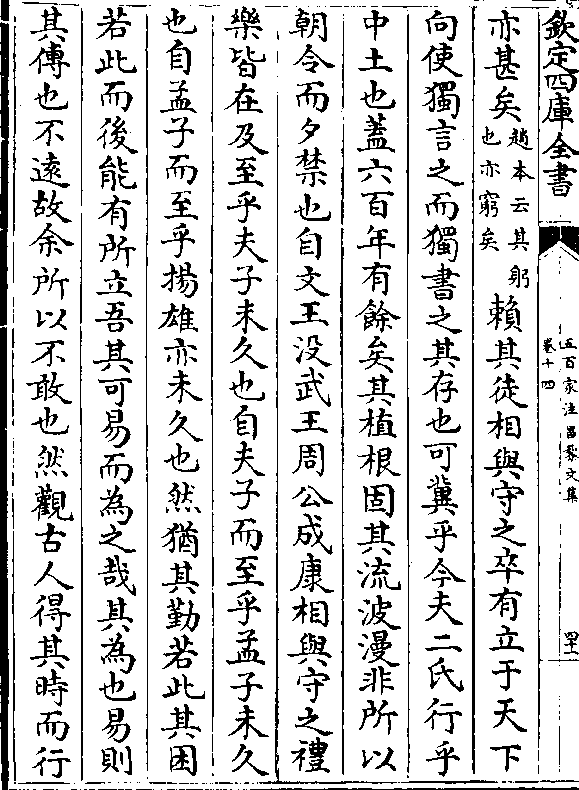 欽定四庫全書
五百家注昌黎文集
卷十四
亦甚矣趙本云其躬也亦窮矣賴其徒相與守之卒有立于天下
向使獨言之而獨書之其存也可冀乎今夫二氏行乎
中土也蓋六百年有餘矣其植根固其流波漫非所以
朝令而夕禁也自文王沒武王周公成康相與守之禮
樂皆在及至乎夫子未久也自夫子而至乎孟子未久
也自孟子而至乎揚雄亦未久也然猶其勤若此其困
若此而後能有所立吾其可易而為之哉其為也易則
其傳也不遠故余所以不敢也然觀古人得其時而行